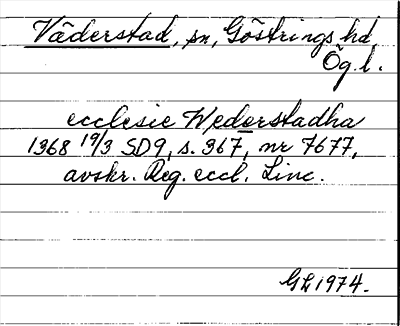 Väderstad, sn, Göstrings hd
Ög.l.
ecclesie Wederstadha
1368 19/3 SD9, s. 367, nr 7677,
avskr. Reg. eccl. Linc.
GL 1974.